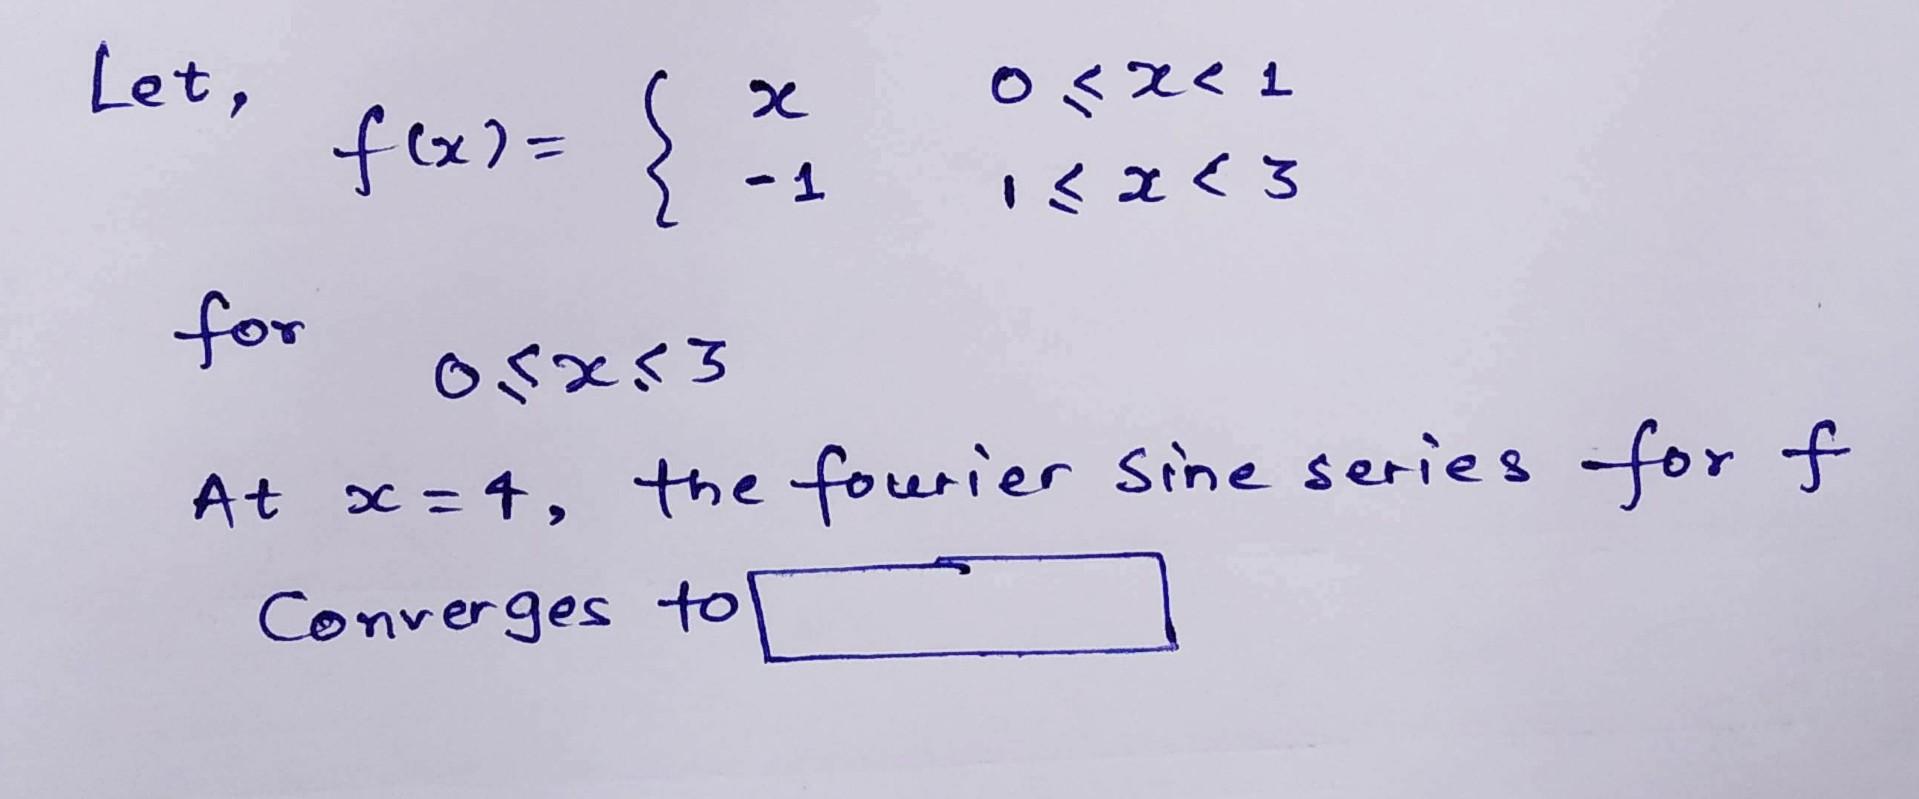 Let,
f(x) = { x 0 ⩽ x < 1
-1 1 ⩽ x < 3
for 0 ⩽ x ⩽ 3
At x = 4, the fourier Sine series for f
Converges to